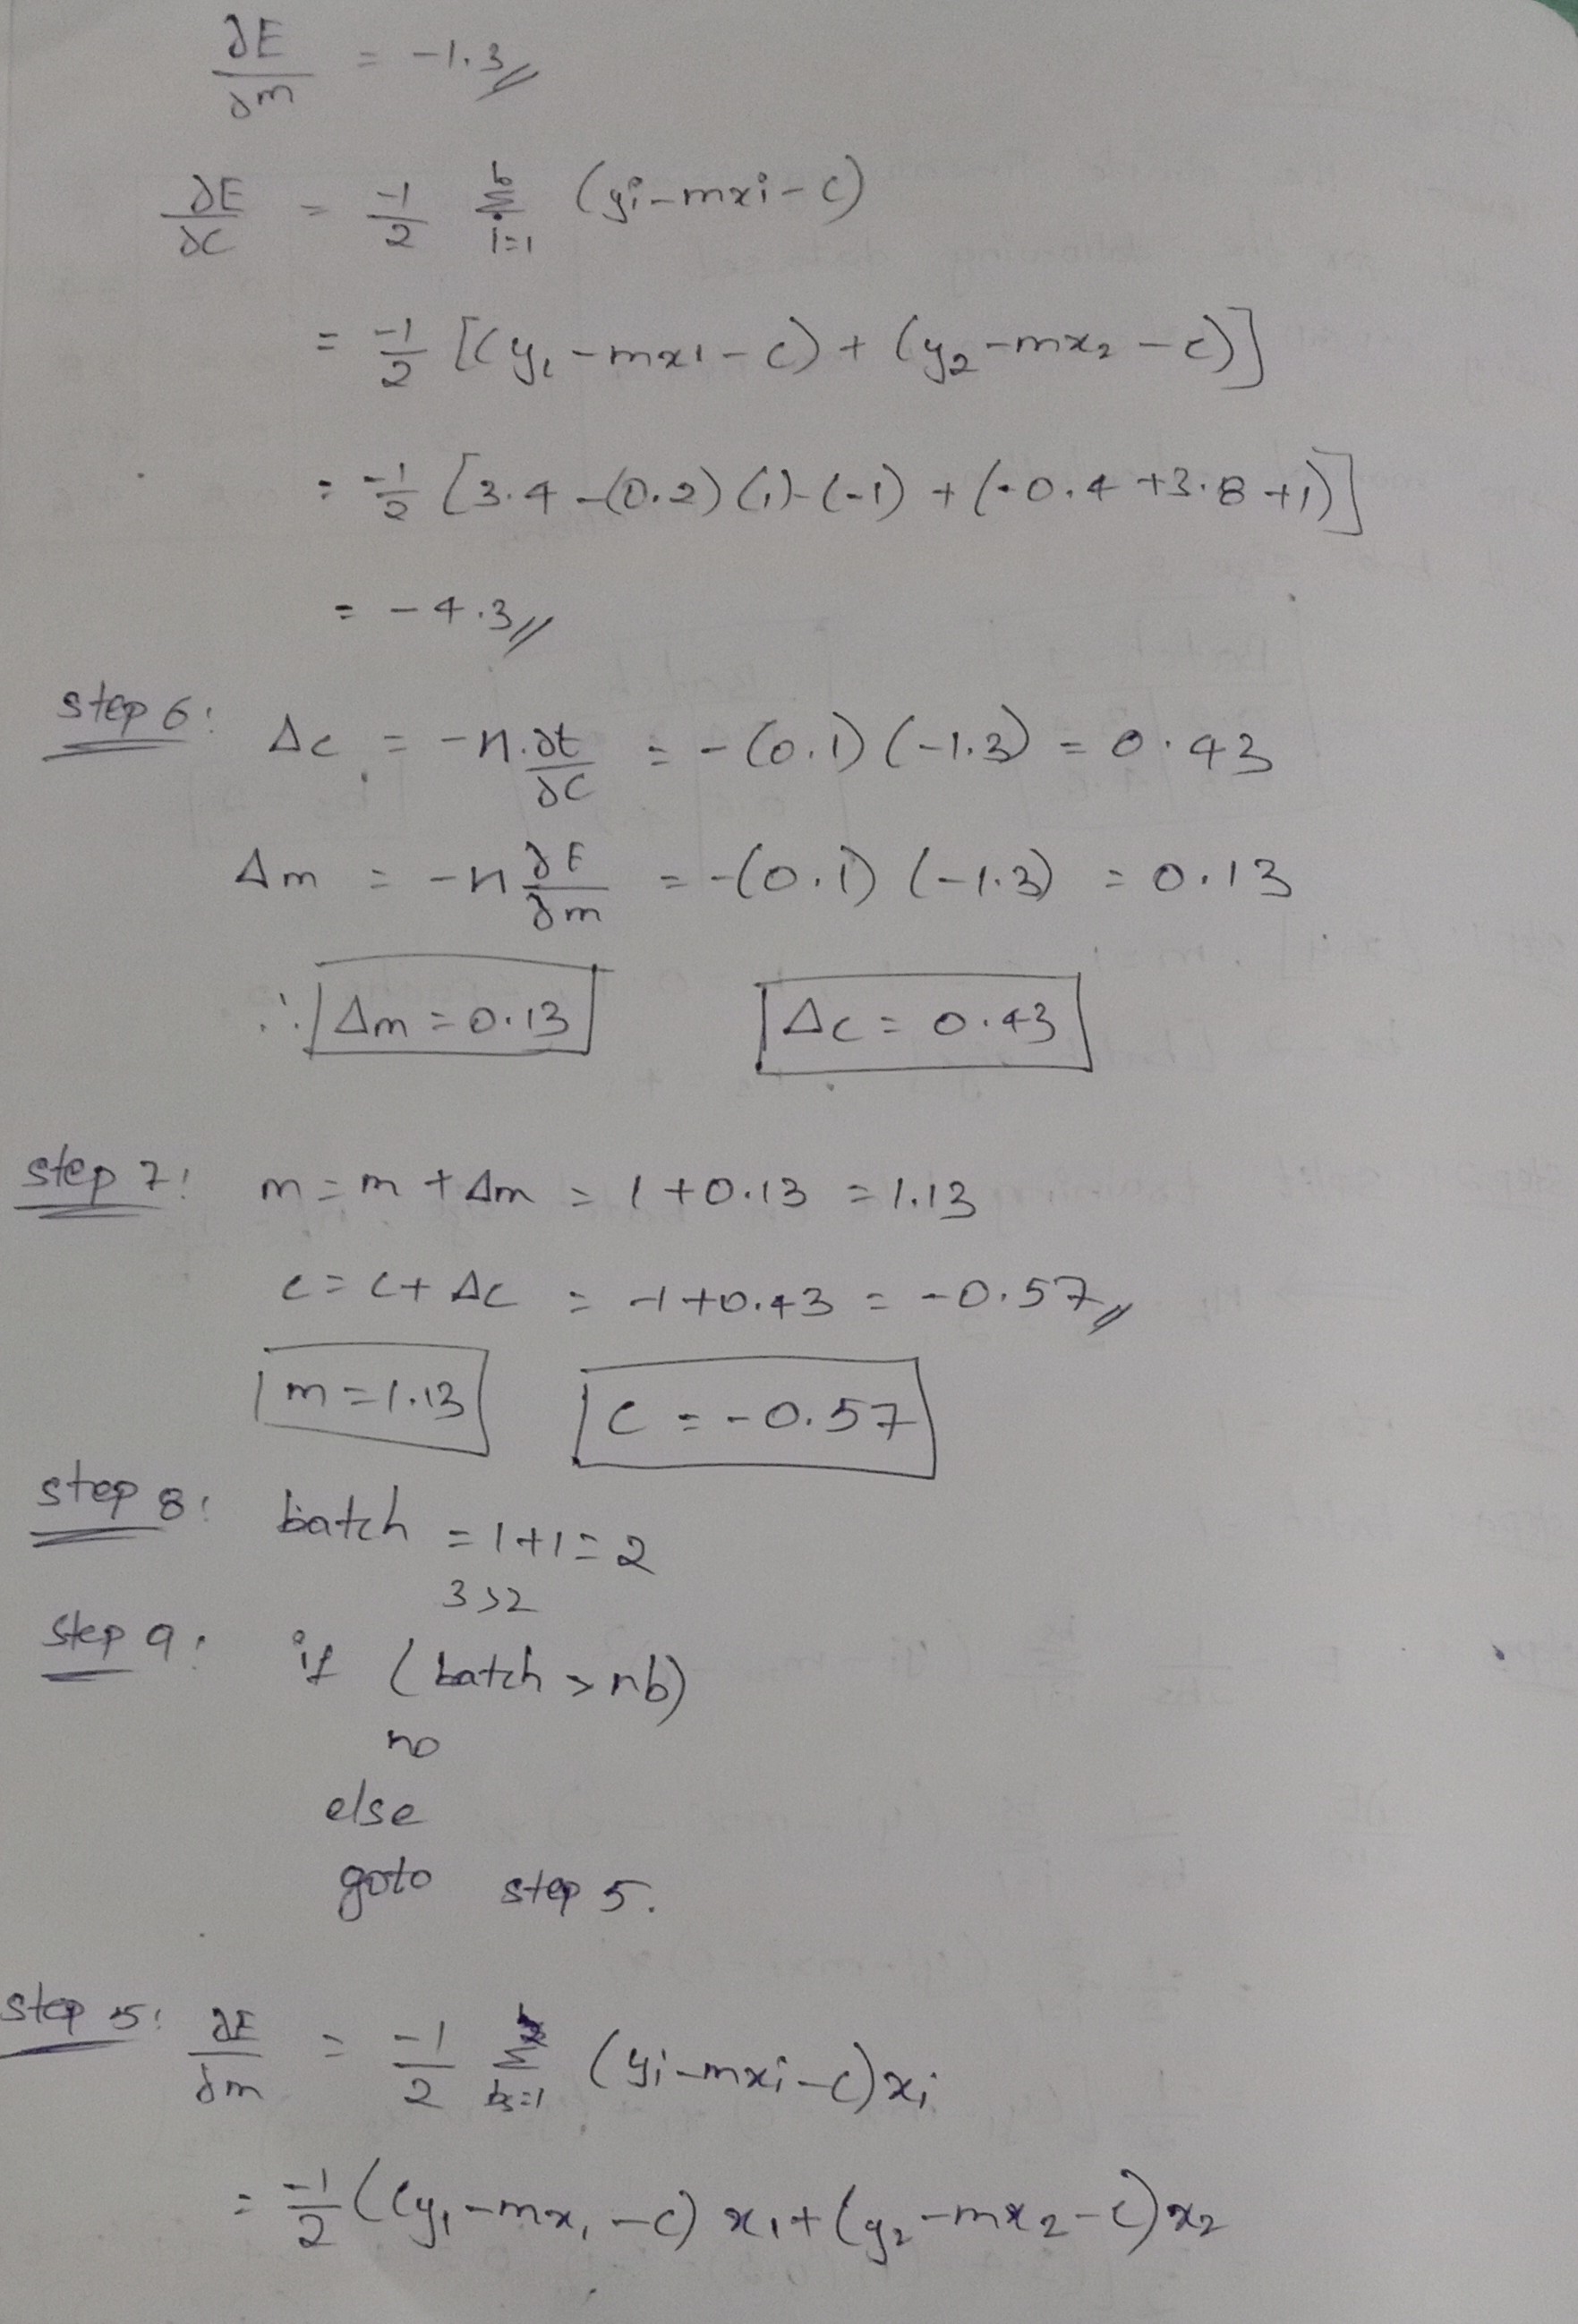 ∂E/∂m = -1.3
∂E/∂c = -1/2 Σ_{i=1}^{b} (yi-mxi-c)
= -1/2 [(y1-mx1-c)+(y2-mx2-c)]
= -1/2 [3.4-(0.2)(1)-(-1)+(-0.4+3.8+1)]
= -4.3
step 6: Δc = -η.∂t/∂c = -(0.1)(-1.3) = 0.43
Δm = -η ∂E/∂m = -(0.1)(-1.3) = 0.13
∴ Δm = 0.13 Δc = 0.43
step 7: m = m + Δm = 1+0.13 = 1.13
c = c+Δc = -1+0.43 = -0.57
m = 1.13 c = -0.57
step 8: batch = 1+1 = 2
3>2
step 9: if (batch > nb)
no
else
goto step 5.
step 5: ∂E/∂m = -1/2 Σ (yi-mxi-c)xi
= -1/2 ((y1-mx1-c) x1+(y2-mx2-c)x2